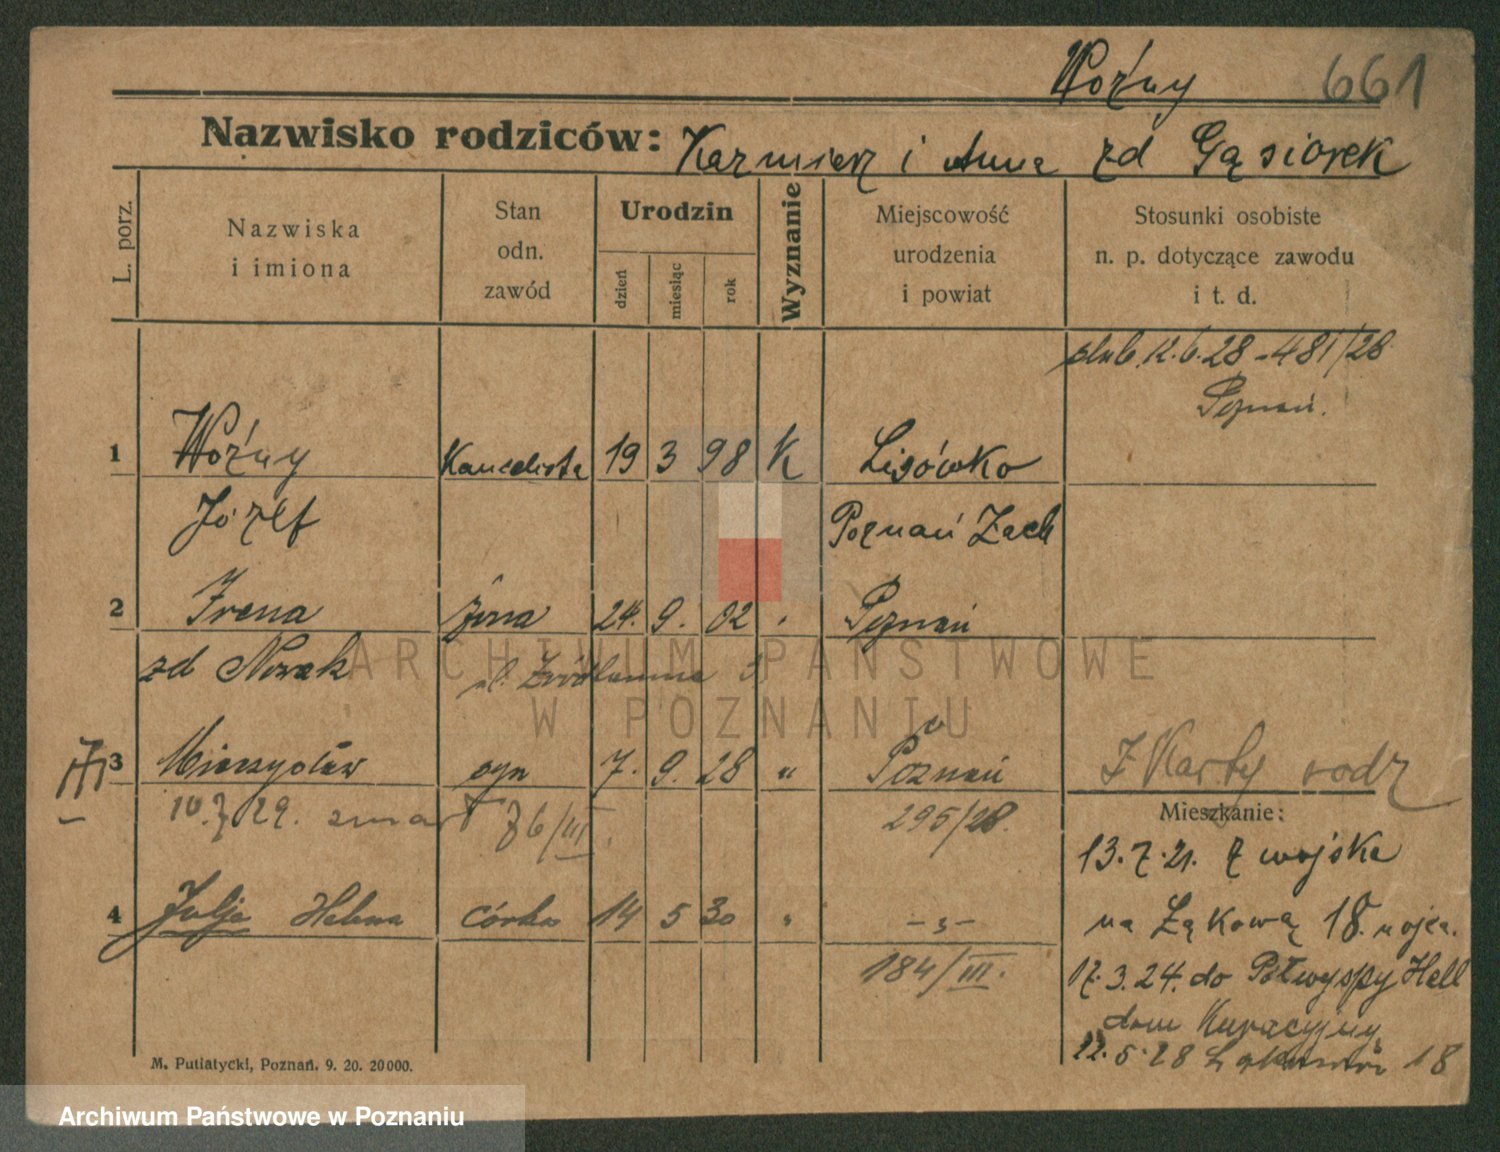 Woźny 661
Nazwisko rodziców: Kazmierz i Anna zd Gąsiorek
L. porz.
Nazwiska
i imiona
Stan
odn.
zawód
Urodzin
dzień
miesiąc
rok
Wyznanie
Miejscowość
urodzenia
i powiat
Stosunki osobiste
n. p. dotyczące zawodu
i t. d.
ślub. 12.6.28 - 481/28
Poznań.
1 Woźny Kancelista 19 3 98 K Lisówko
Józef Poznań Zach
2 Irena żona 24. 9. 02 " Poznań
zd Nowak ul. Źródlanna 3
3 Mieczysław syn 7. 9. 28 " Poznań Z Karty rodz
10.7 29. zmarł 76/III. 295/28.
Mieszkanie:
13.7.21. z wojska
4 Julja Helena córka 14 5 30 " -"-
na Łąkową 18. u ojca.
184/III.
17.3.24. do Półwyspy Hell
dom Kuracyjny
12.5.28 Łąkowa 18
M. Putiatycki, Poznań. 9. 20. 20000.
ARCHIWUM PAŃSTWOWE
W POZNANIU
Archiwum Państwowe w Poznaniu